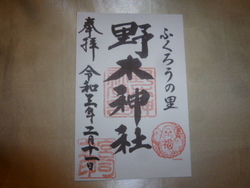 ふくろうの里
野木神社
奉拝
令和三年二月十一日